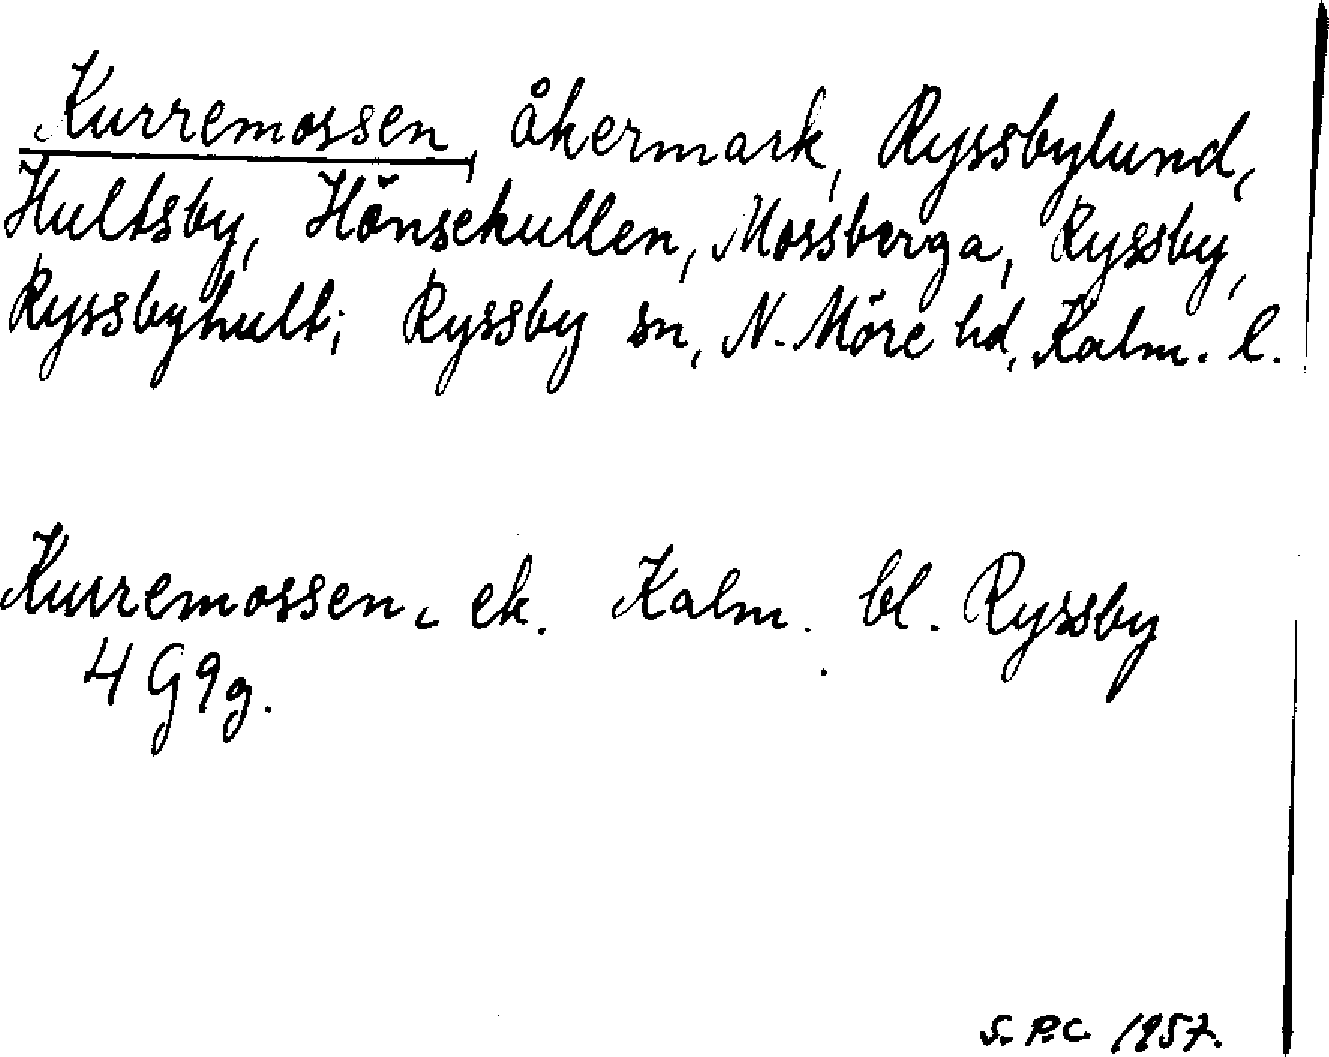 Kurremossen, åkermark, Ryssbylund,
Hultsby, Hönsekullen, Mossberga, Ryssby,
Ryssbyhult; Ryssby sn, N. Möre hd, Kalm. l.
Kurremossen, ek. Kalm. bl. Ryssby
4 G 9 g.
S. P.C. 1957.